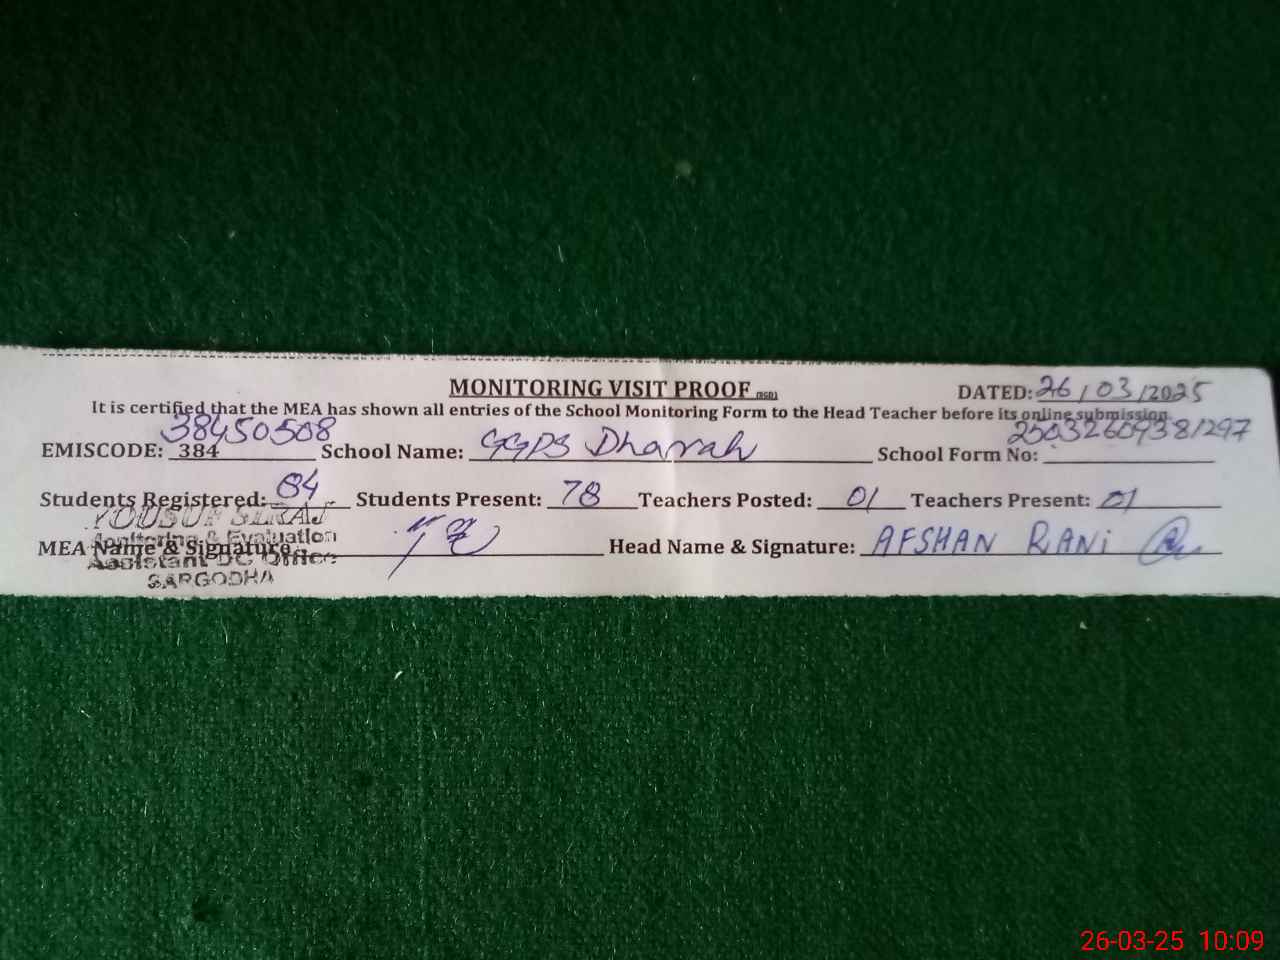 MONITORING VISIT PROOF DATED: 26/03/2025
It is certified that the MEA has shown all entries of the School Monitoring Form to the Head Teacher before its online submission.
38450508 25032609381297
EMISCODE: 384 School Name: GGPS Dharrah School Form No:
Students Registered: 84 Students Present: 78 Teachers Posted: 01 Teachers Present: 01
YOUSUF SIRAJ
Monitoring & Evaluation
MEA Name & Signature Head Name & Signature: AFSHAN RANi
Assistant DC Office
SARGODHA
26-03-25 10:09